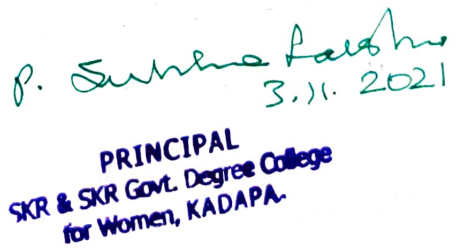 P. Subba Lakshmi
3.11.2021
PRINCIPAL
SKR & SKR Govt. Degree College
for Women, KADAPA.